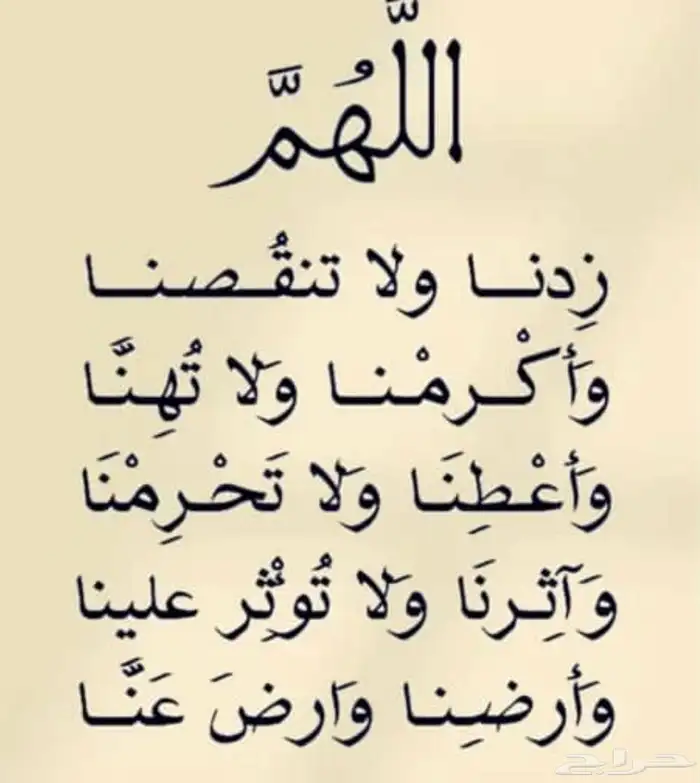 اللَّهُمَّ
زِدنا ولا تنقُصنا
وَأَكْرمْنا وَلا تُهِنَّا
وَأَعْطِنَا وَلا تَحْرِمْنَا
وَآثِرنَا وَلا تُوثْر علينا
وَأَرضِنا وَارضَ عَنَّا
حراج